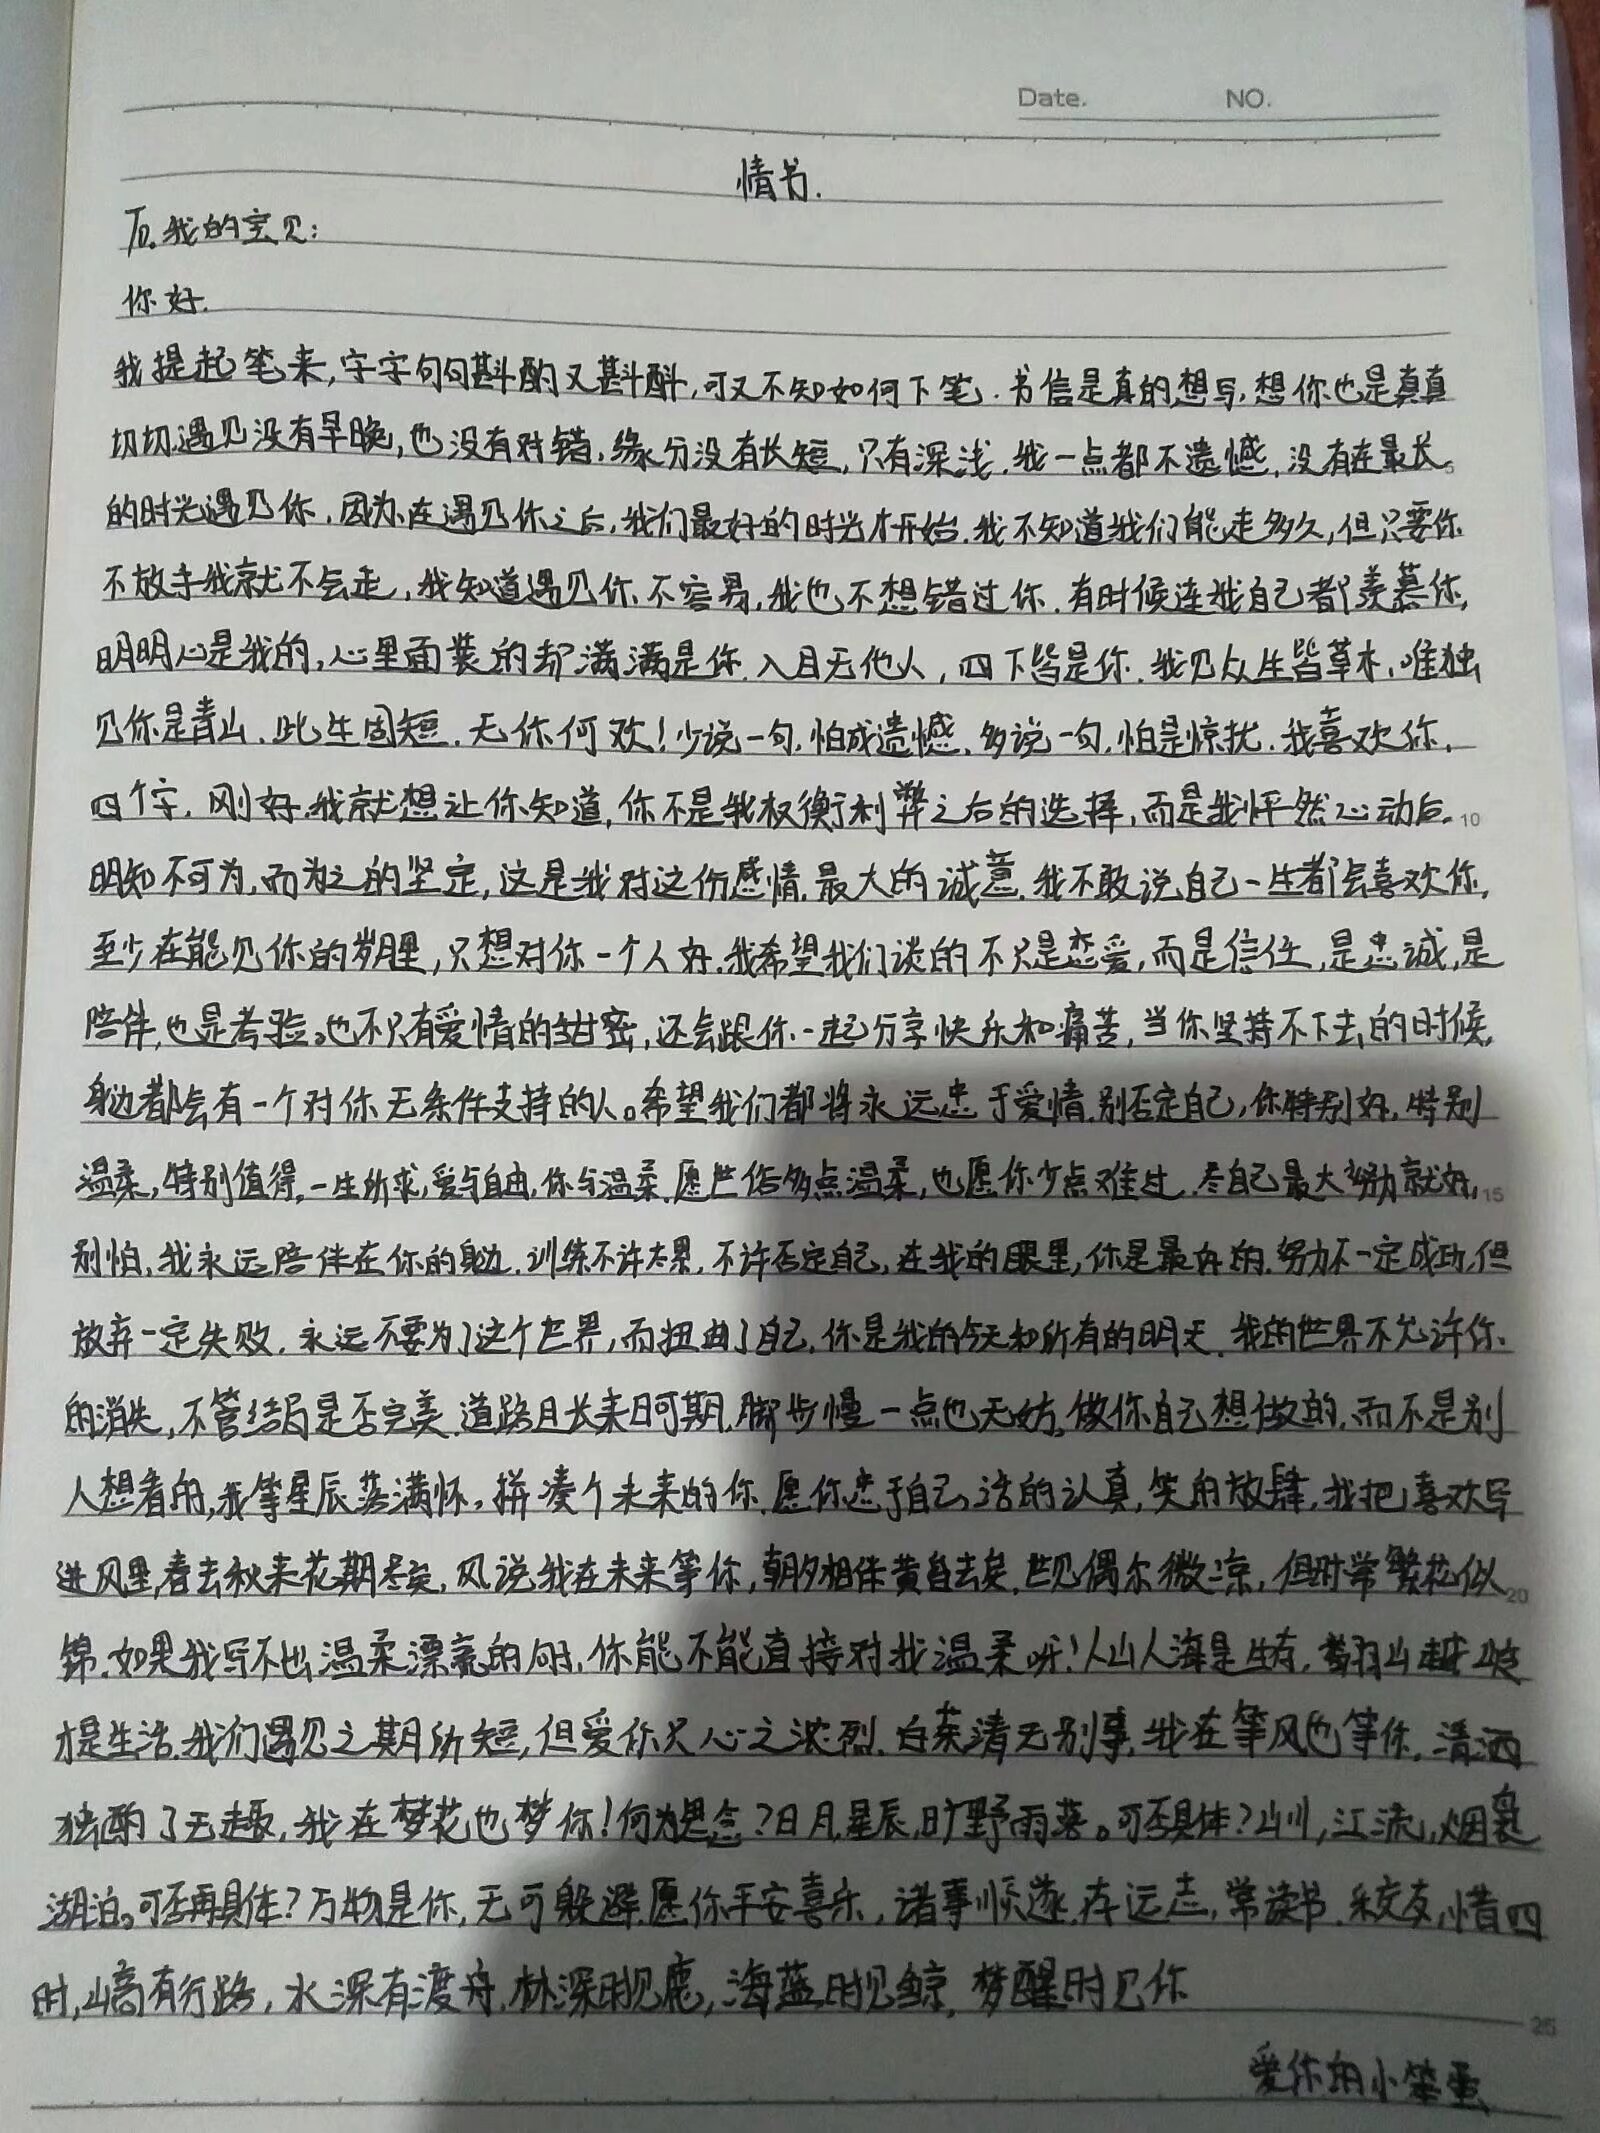 Date. NO.
情书.
To.我的宝贝:
你好.
我提起笔来,字字句句斟酌又斟酌,可又不知如何下笔.书信是真的想写,想你也是真真
切切.遇见没有早晚,也没有对错,缘分没有长短,只有深浅.我一点都不遗憾,没有在最长
5
的时光遇见你.因为在遇见你之后,我们最好的时光才开始.我不知道我们能走多久,但只要你
不放手我就不会走,我知道遇见你不容易,我也不想错过你.有时候连我自己都羡慕你,
明明心是我的,心里面装的却满满是你.入目无他人,四下皆是你.我见众生皆草木,唯独
见你是青山.此生固短,无你何欢!少说一句,怕成遗憾,多说一句,怕是惊扰.我喜欢你,
四个字,刚好.我就想让你知道,你不是我权衡利弊之后的选择,而是我怦然心动后.
10
明知不可为,而为之的坚定,这是我对这份感情,最大的诚意.我不敢说自己一生都会喜欢你,
至少在能见你的岁月里,只想对你一个人好.我希望我们谈的不只是恋爱,而是信任,是忠诚,是
陪伴,也是考验。也不只有爱情的甜密,还会跟你一起分享快乐和痛苦,当你坚持不下去的时候,
身边都会有一个对你无条件支持的人。希望我们都将永远忠于爱情.别否定自己,你特别好,特别
温柔,特别值得,一生所求,爱与自由,你与温柔.愿生活多点温柔,也愿你少点难过.尽自己最大努力就好,
15
别怕,我永远陪伴在你的身边.训练不许太累,不许否定自己,在我的眼里,你是最好的.努力不一定成功,但
放弃一定失败.永远不要为了这个世界,而扭曲了自己.你是我的今天和所有的明天.我的世界不允许你
的消失,不管结局是否完美.道路且长来日可期,脚步慢一点也无妨,做你自己想做的,而不是别
人想看的,我等星辰落满怀,拼凑个未来的你.愿你忠于自己,活的认真,笑的放肆,我把喜欢写
进风里,春去秋来花期尽矣,风说我在未来等你,朝夕相伴黄昏去矣.世见偶尔微凉,但时常繁花似
20
锦.如果我写不出温柔漂亮的句子,你能不能直接对我温柔呀!人山人海是生存,翻山越岭
才是生活.我们遇见之期所短,但爱你只心之浓烈.白茶清无别事,我在等风也等你,清酒
独酌了无趣,我在梦花也梦你!何为思念?日月,星辰,旷野雨落。可否具体?山川,江流,烟袅
湖泊。可否再具体?万物是你,无可躲避.愿你平安喜乐,诸事顺遂.存远志,常读书.乐交友,惜四
时,山高有行路,水深有渡舟.林深时见鹿,海蓝时见鲸,梦醒时见你
25
爱你的小笨蛋